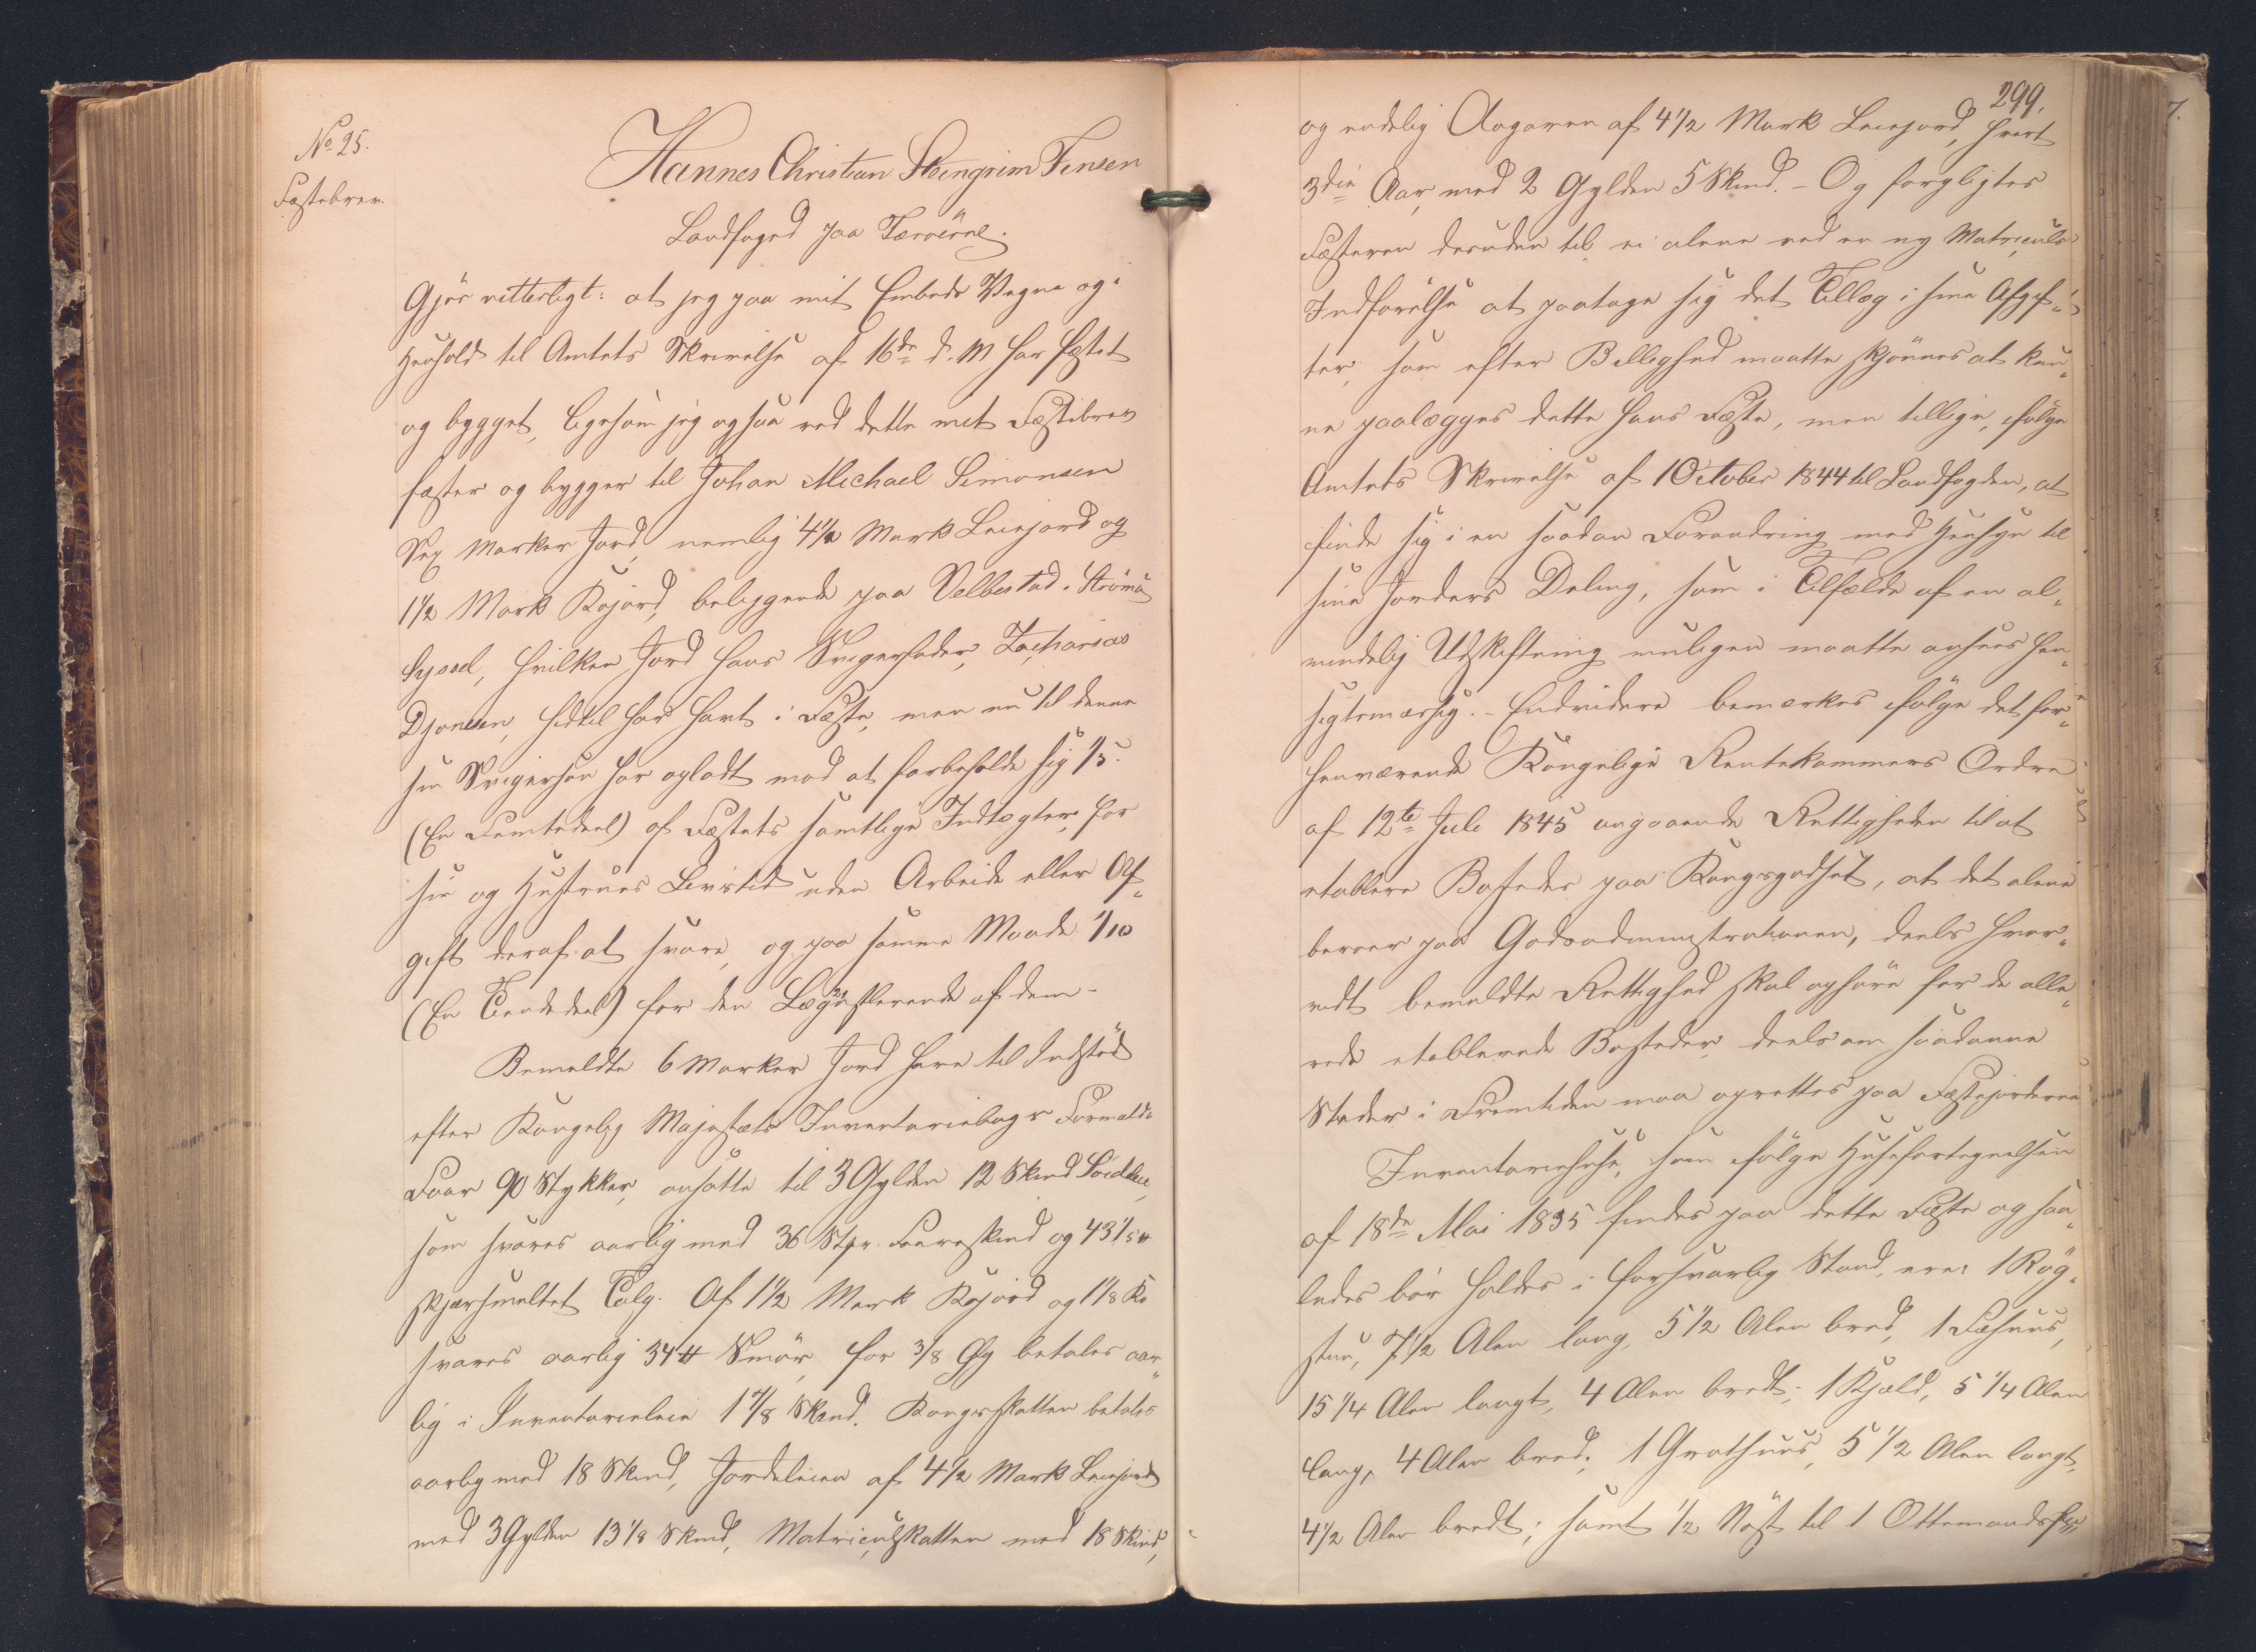 No 25.
Fæstebrev.
Hannes Christian Steingrim Finsen
Landfoged paa Færøerne.
Gjör vitterligt: at jeg paa mit Embeds Vegne og i
Henhold til Amtets Skrivelse af 16de d. M har fæstet
og bygget, ligesom jeg ogsaa ved dette mit Fæstebrev
fæster og bygger til Johan Michael Simonsen
Sex Marker Jord, nemlig 4 1/2 Mark Leiejord og
1 1/2 Mark Kojord, beliggende paa Velbestad i Strömö
Syssel, hvilken Jord hans Svigerfader, Zacharias
Djonesen, hidtil har havt i Fæste, men nu til denne
sin Svigersön har opladt mod at forbeholde sig 1/5
(En Femtedeel) af Fæstets samtlige Indtægter for
sin og Hustrues Levetid uden Arbeide eller Af„
gift deraf at svare, og paa samme Maade 1/10
(En Tiendedeel) for den Længstlevende af dem -
Bemeldte 6 Marker Jord have til Indstöd
efter Kongelig Majestæts Inventariebogs Formeld:
Faar 90 Stykker, ansatte til 3 Gylden 12 Skind Landleie,
som svares aarlig med 36 Stkr. Faareskind og 43 1/5 ℔
skjærsmeltet Talg. Af 1 1/2 Mark Kojord og 1 1/8 Ko
svares aarlig 34 ℔ Smör, for 3/8 Qvg betales aar„
lig i Inventarieleie 1 7/8 Skind. Kongsskatten betales
aarlig med 18 Skind, Jordeleien af 4 1/2 Mark Leiejord
med 3 Gylden 13 1/8 Skind, Matriculskatten med 18 Skind,
299.
og endelig Aagaven af 4 1/2 Mark Leiejord, hvert
3die Aar med 2 Gylden 5 Skind. - Og forpligtes
Fæsteren desuden til ei alene ved en ny Matriculs
Indförelse at paatage sig det Tillæg i sine Afgif„
ter, som efter Billighed maatte skjönnes at kun„
ne paalægges dette hans Fæste, men tillige, ifölge
Amtets Skrivelse af 1 October 1844 til Landfogden, at
finde sig i en saadan Forandring med Hensyn til
sine Jorders Deling, som i Tilfælde af en al„
mindelig Udskiftning muligen maatte ansees hen„
sigtsmæssig. - Endvidere bemærkes ifölge det for„
henværende Kongelige Rentekammers Ordre
af 12te Juli 1845 angaaende Rettigheden til at
etablere Bosteder paa Kongsgodset, at det alene
beroer paa Godsadministrationen, deels hvor„
vidt bemeldte Rettighed skal ophöre for de alle„
rede etablerede Bosteder, deels om saadanne
Steder i Fremtiden maa oprettes paa Fæstejorderne.
Inventariehuse, som ifölge Husefortegnelsen
af 18de Mai 1835 findes paa dette Fæste og saa„
ledes bör holdes i forsvarlig Stand, ere: 1 Rög„
stue, 7 1/2 Alen lang, 5 1/2 Alen bred, 1 Fæhuus,
15 1/4 Alen langt, 4 Alen bredt; 1 Kjæld, 5 1/4 Alen
lang, 4 Alen bred; 1 Grothuus, 5 1/2 Alen langt,
4 1/2 Alen bredt; samt 1/2 Nöst til 1 Ottemands